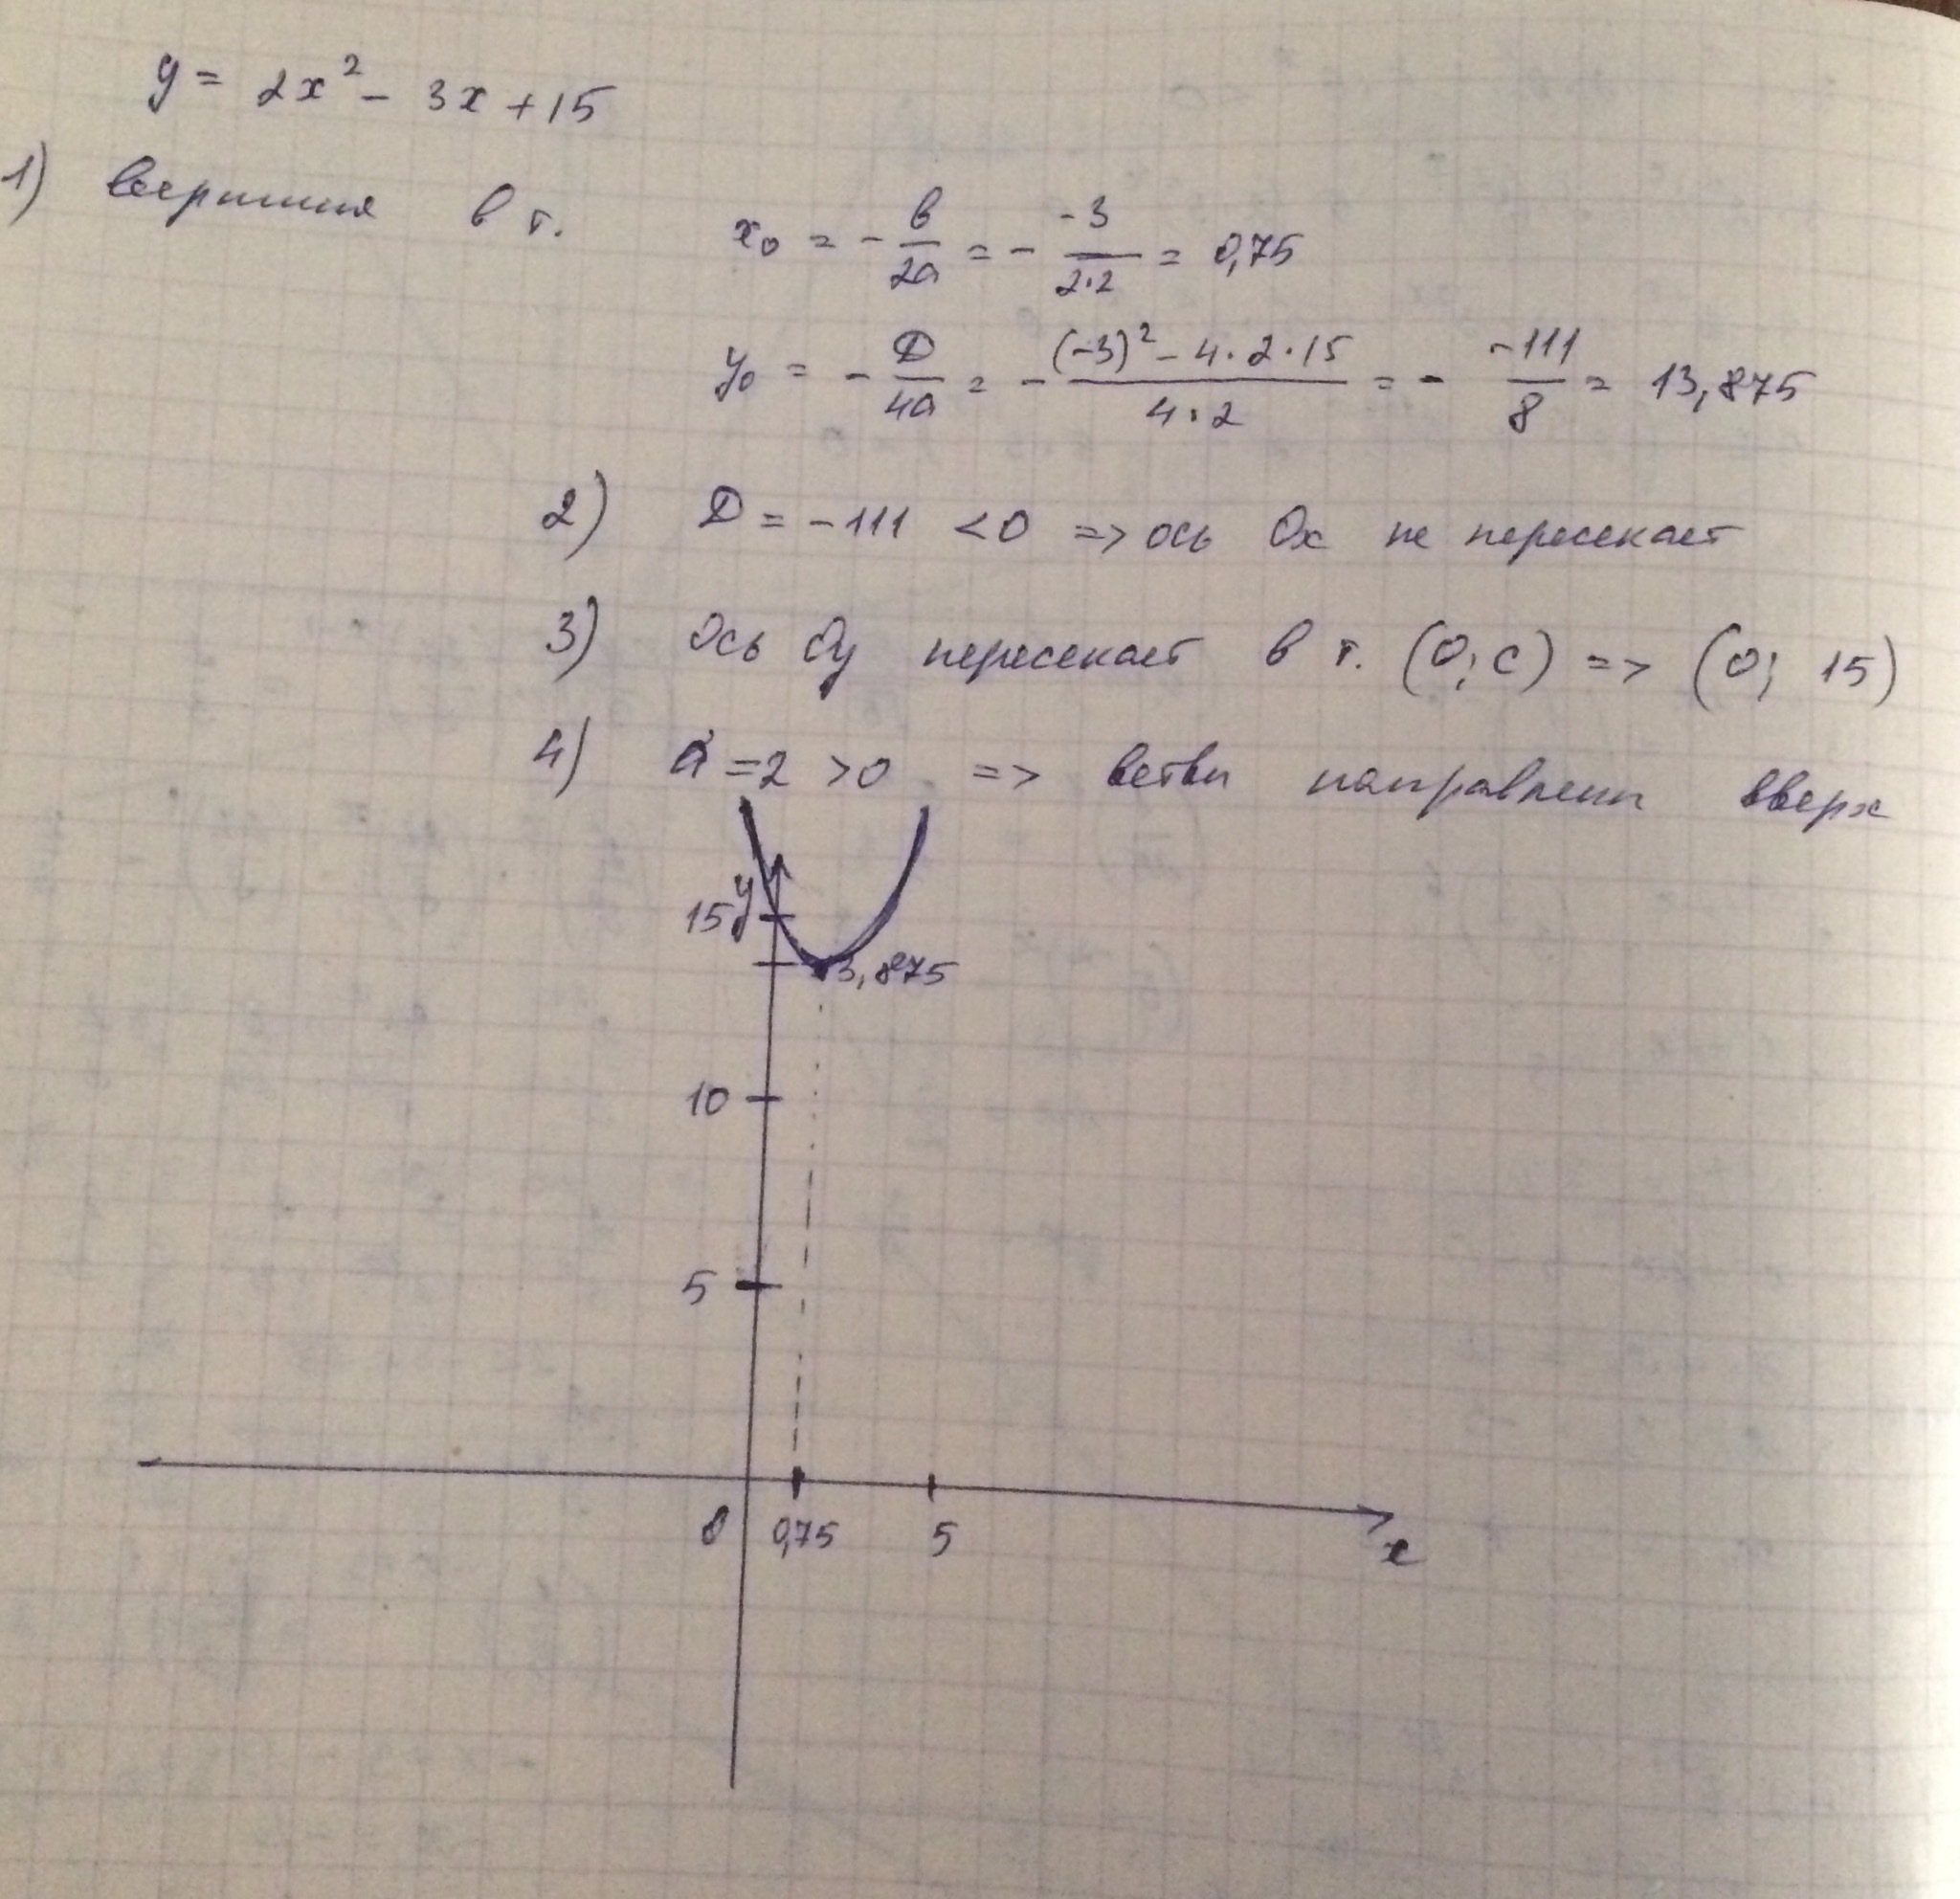 y = 2x² - 3x + 15
1) Вершина в т. x₀ = - в/2a = - -3/2·2 = 0,75
y₀ = - D/4a = - (-3)² - 4·2·15/4·2 = - -111/8 = 13,875
2) D = -111 < 0 => ось Ox не пересекает
3) Ось Oy пересекает в т. (0; c) => (0; 15)
4) a = 2 > 0 => ветви направлены вверх
y
15
13,875
10
5
0 0,75 5
x